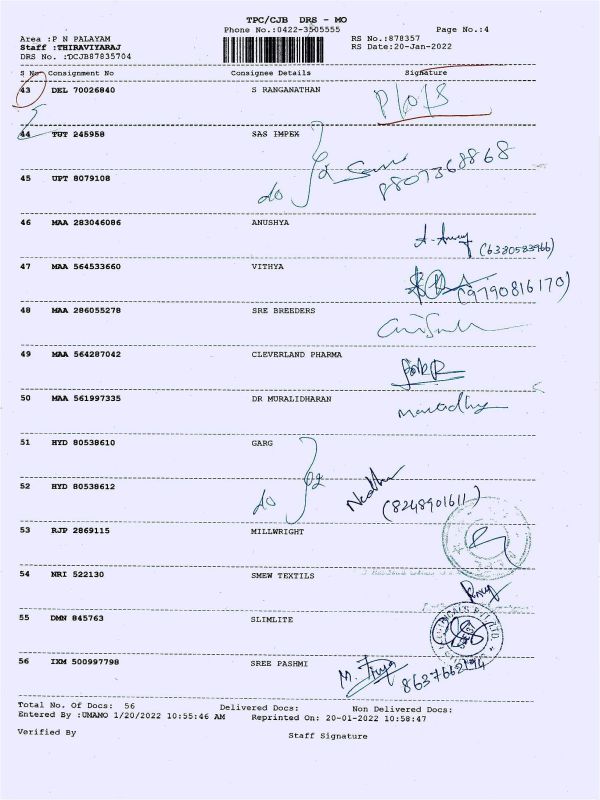 TPC/CJB DRS - MO
Phone No.:0422-3505555 Page No.:4
Area :P N PALAYAM RS No.:878357
Staff :THIRAVIYARAJ RS Date:20-Jan-2022
DRS No. :DCJB87835704
S No Consignment No Consignee Details Signature
43 DEL 70026840 S RANGANATHAN
44 TUT 245958 SAS IMPEX
do 8807368868
45 UPT 8079108
46 MAA 283046086 ANUSHYA
(6380583966)
47 MAA 564533660 VITHYA
(9790816170)
48 MAA 286055278 SRE BREEDERS
49 MAA 564287042 CLEVERLAND PHARMA
50 MAA 561997335 DR MURALIDHARAN
51 HYD 80538610 GARG
52 HYD 80538612
do (8248901611)
53 RJP 2869115 MILLWRIGHT
54 NRI 522130 SMEW TEXTILS
55 DMN 845763 SLIMLITE
56 IXM 500997798 SREE PASHMI
Total No. Of Docs: 56 Delivered Docs: Non Delivered Docs:
Entered By :UMAMO 1/20/2022 10:55:46 AM Reprinted On: 20-01-2022 10:58:47
Verified By Staff Signature